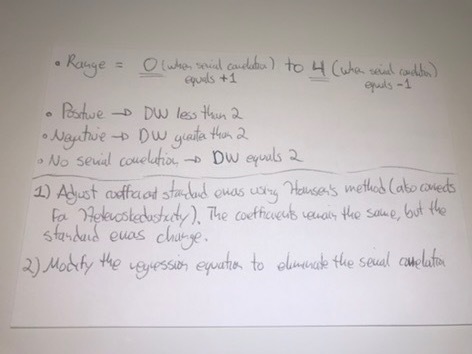 • Range = 0 (when serial correlation) to 4 (when serial correlation)
equals +1 equals -1
• Positive → DW less than 2
• Negative → DW greater than 2
• No serial correlation → DW equals 2
1) Adjust coefficient standard errors using Hansen's method (also corrects
for Heteroskedasticity). The coefficients remain the same, but the
standard errors change.
2) Modify the regression equation to eliminate the serial correlation